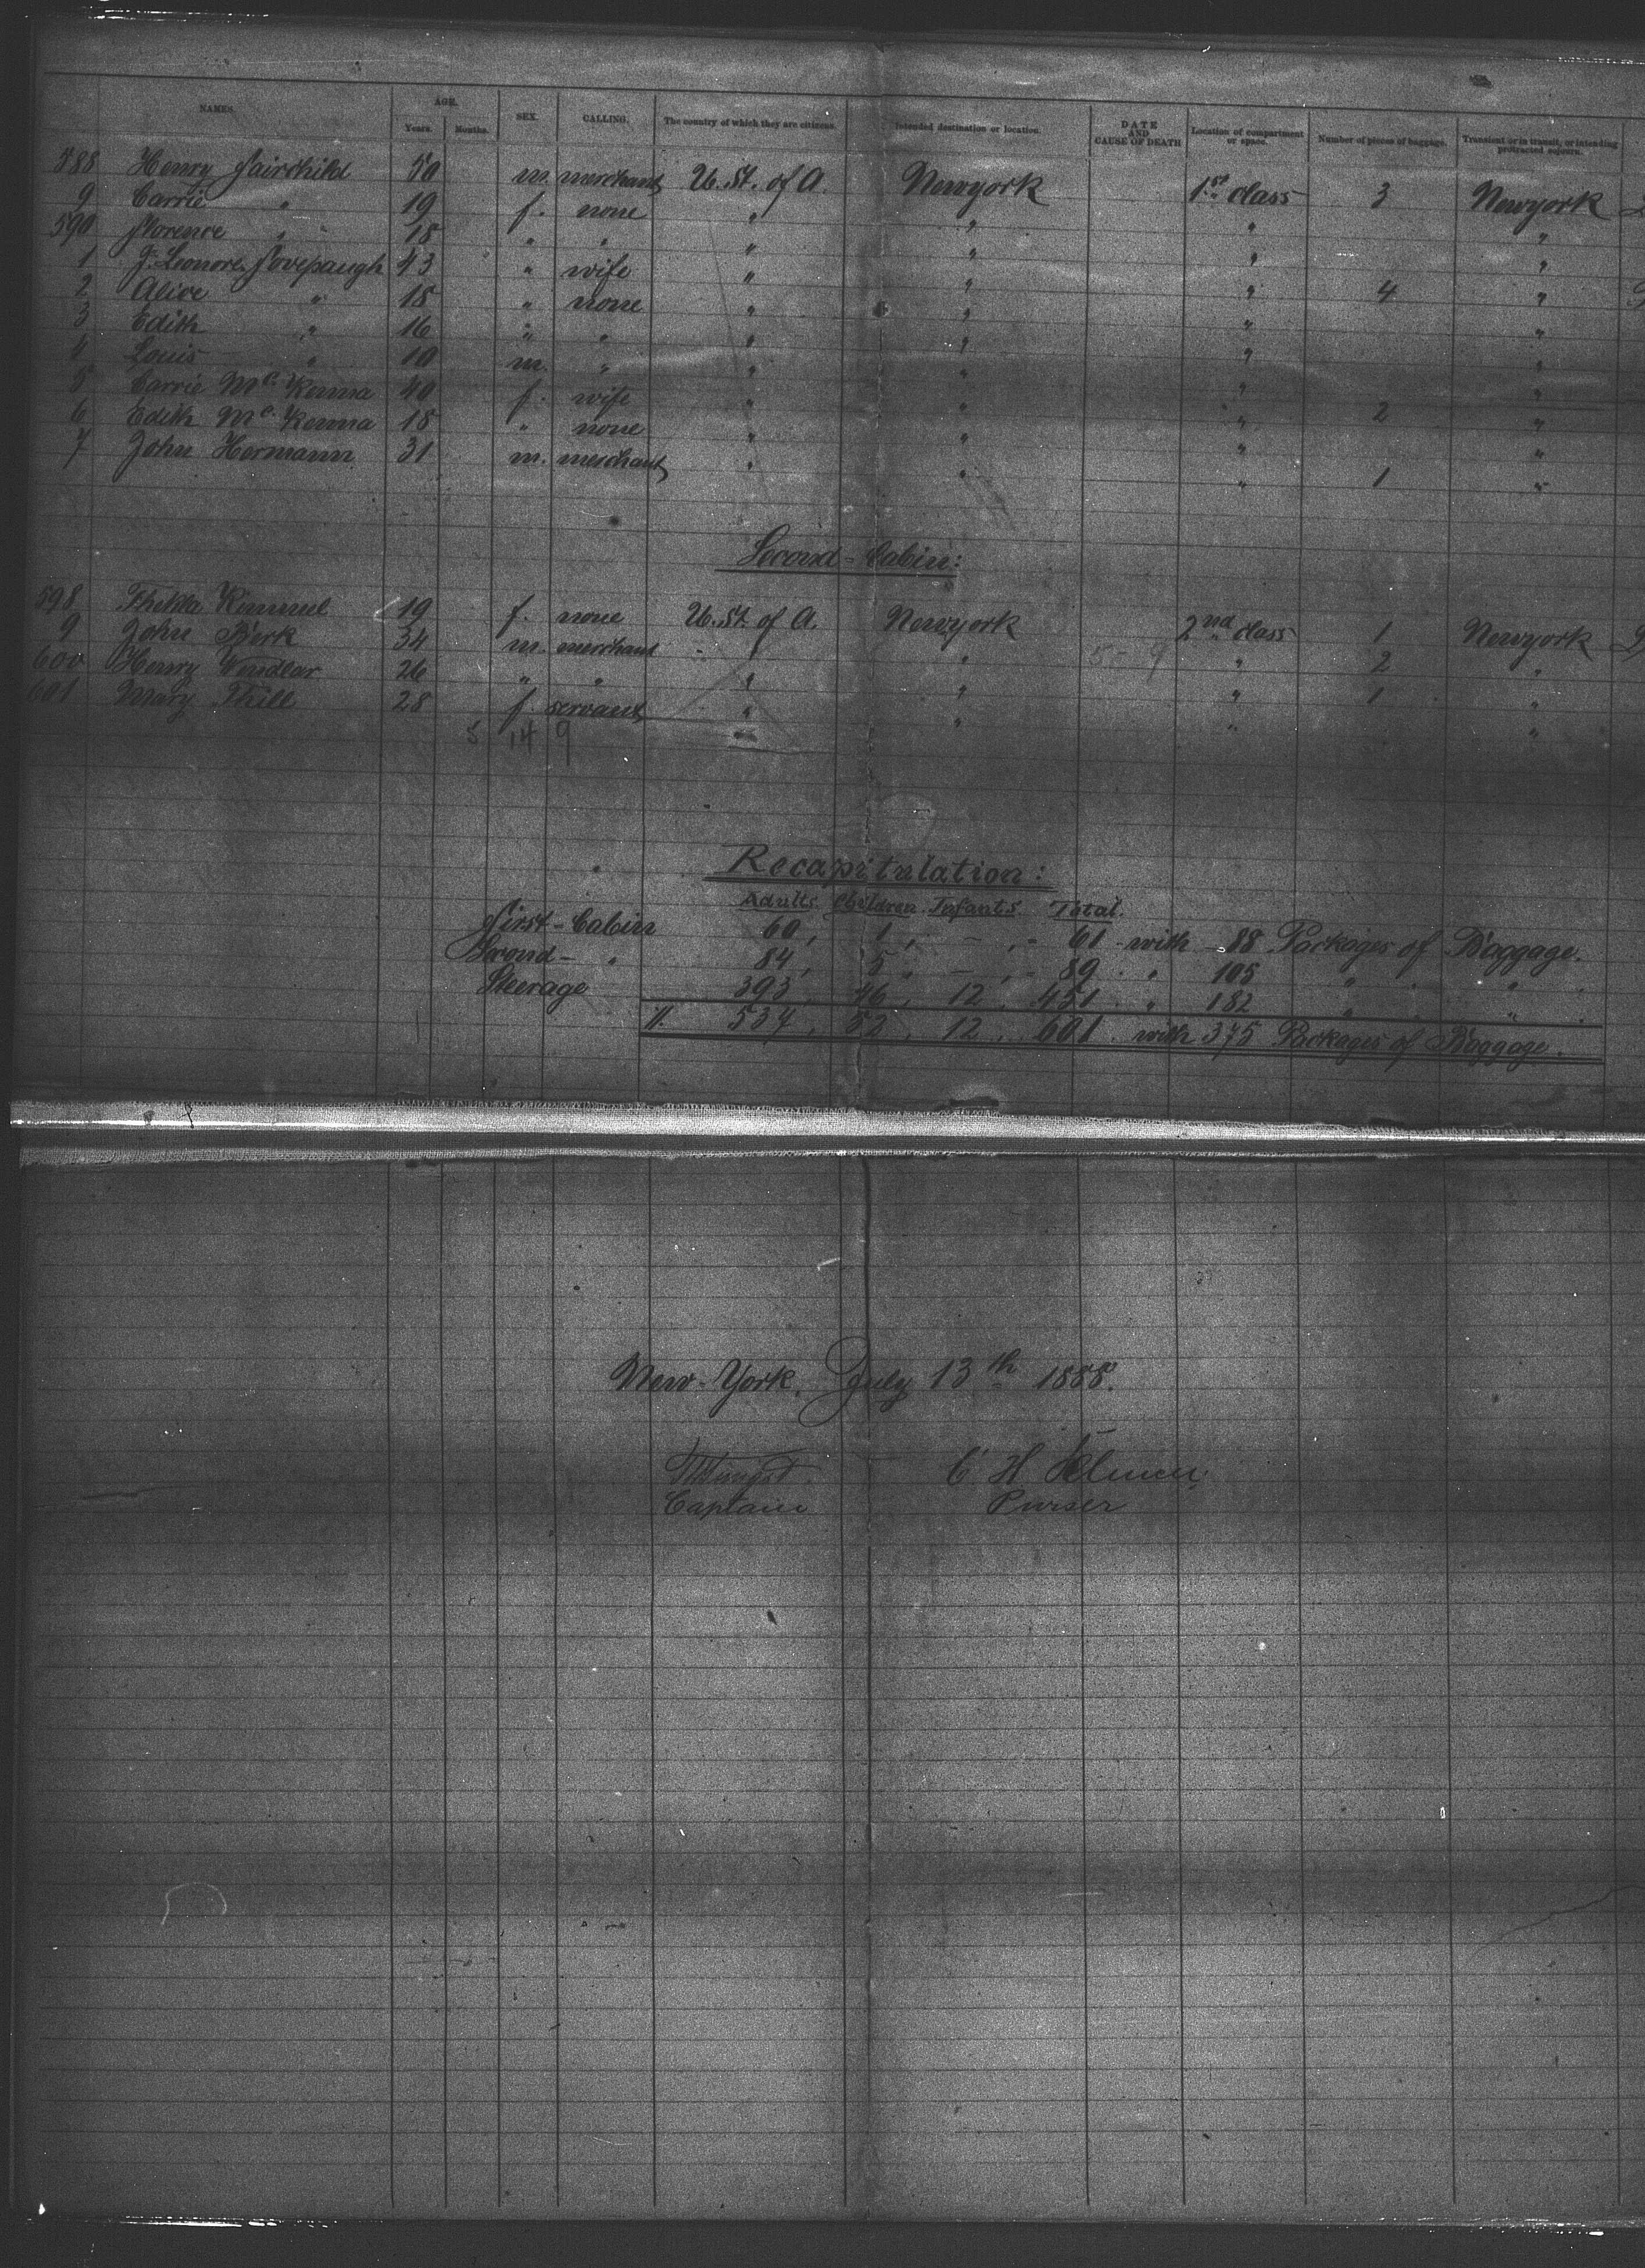 NAMES. AGE. SEX. CALLING. The country of which they are citizens. Intended destination or location. DATE AND CAUSE OF DEATH Location of compartment or space. Number of pieces of baggage. Transient or in transit, or intending protracted sojourn.
Years. Months.
588 Henry Fairchild 50 m. merchant U. St. of A. Newyork 1st class 3 Newyork
9 Carrie " 19 f. none " " " "
590 Florence " 18 " " " " " "
1 J. Leonore 43 " wife " " " 4 "
2 Alice " 18 " none " " " "
3 Edith " 16 " " " " " "
4 Louis " 10 m. " " " " "
5 Carrie Mc. Kenna 40 f. wife " " " 2 "
6 Edith Mc. Kenna 18 " none " " " "
7 John Hermann 31 m. merchant " " " 1 "
Second-Cabin:
598 Thekla Kimmel 19 f. none U. St. of A. Newyork 2nd class 1 Newyork
9 John Bork 34 m. merchant " " 5 - 9 " 2 "
600 Henry Windlar 26 " " " " " 1 "
601 Mary Thill 28 f. servant " " " "
5 14 9
Recapitulation:
Adults Children Infants Total.
First-Cabin 60, 1, - , - 61 with 88 Packages of Baggage.
Second- " 84, 5, - , - 89 " 105 " "
Steerage 393, 46, 12, 451 " 182 " "
//. 537, 52, 12, 601. with 375 Packages of Baggage.
New-York, July 13th 1888.
C. H.
Captain Purser